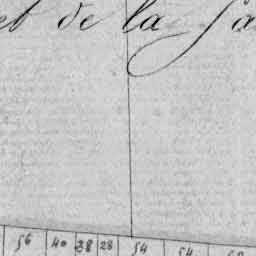 et de la Sa
56 40 38 28 54 54